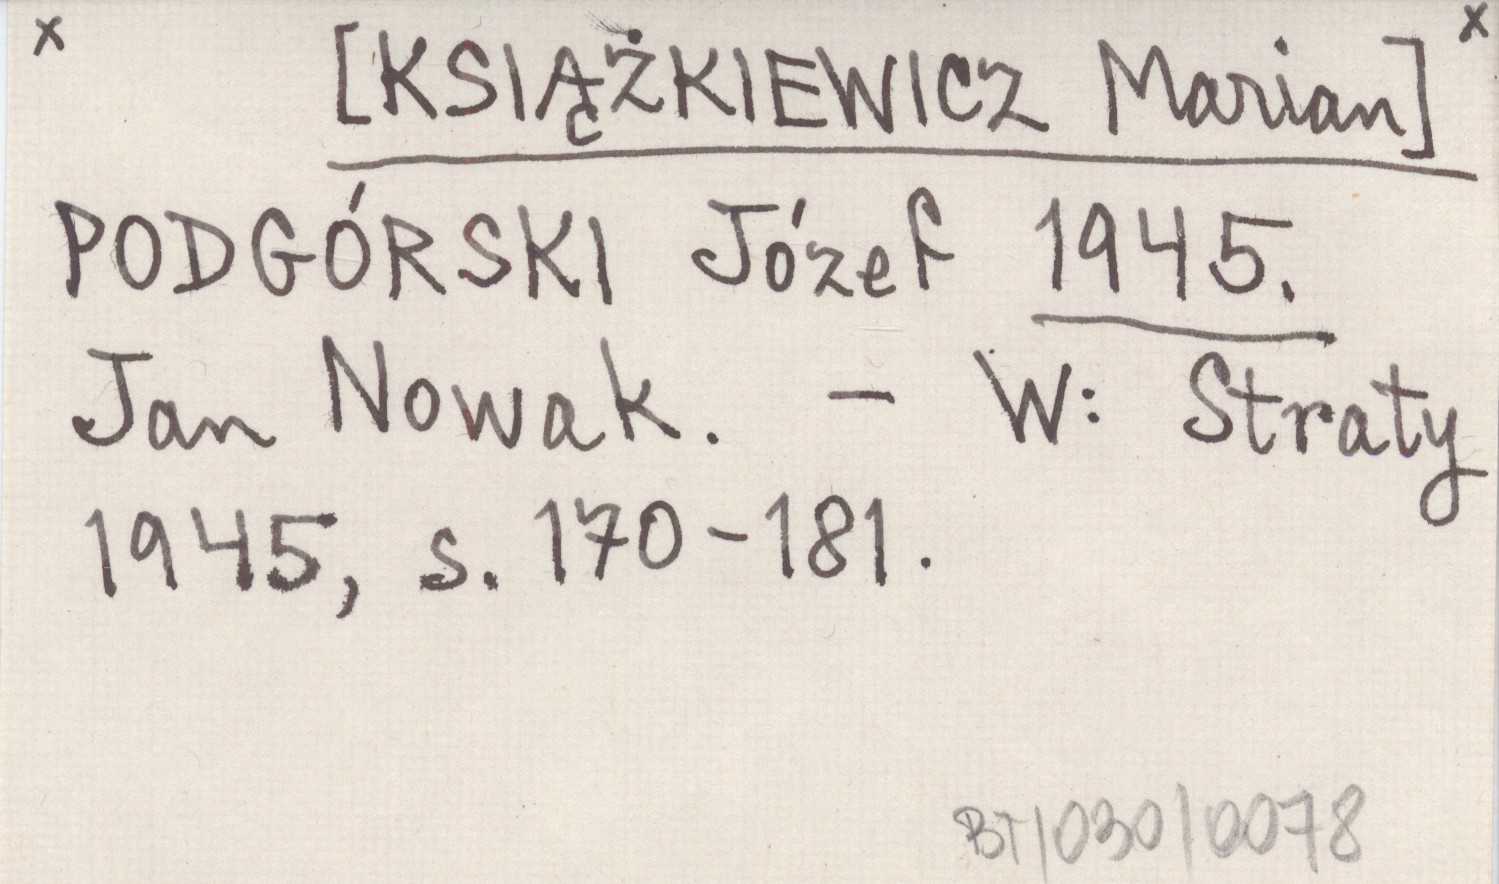 x x
[KSIĄŻKIEWICZ Marian]
PODGÓRSKI Józef 1945.
Jan Nowak. – W: Straty
1945, s. 170-181.
BT/030/0078